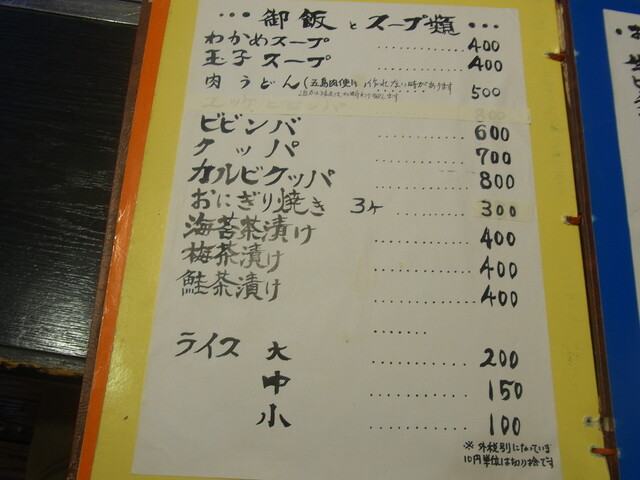 ・・・御飯とスープ類・・・
わかめスープ ………… 400
玉子スープ ………… 400
肉うどん(五島肉使用)作れない時があります ……… 500
ビビンバ ………… 600
クッパ ………… 700
カルビクッパ ………… 800
おにぎり焼き 3ヶ ………… 300
海苔茶漬け ………… 400
梅茶漬け ………… 400
鮭茶漬け ………… 400
ライス 大 ………… 200
中 ………… 150
小 ………… 100
※外税別になっています
10円単位は切り捨てです